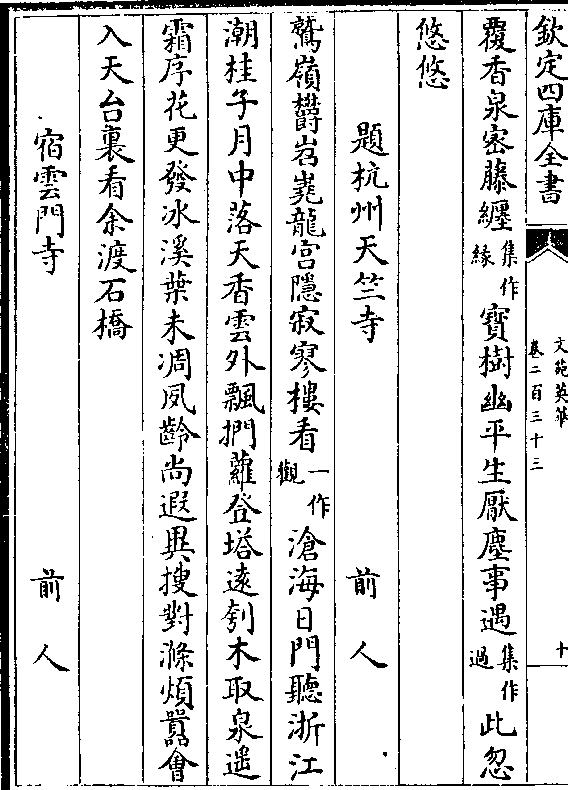 欽定四庫全書
文苑英華
卷二百三十三
十
覆香泉密藤纏集作緣寶樹幽平生厭塵事遇集作過此忽
悠悠
題杭州天竺寺 前人
鷲嶺欝岧嶤龍宫隱寂寥樓看一作觀滄海日門聽浙江
潮桂子月中落天香雲外飄捫蘿登塔遠刳木取泉遥
霜序花更發冰溪葉未凋夙齡尚遐異搜對滌煩囂會
入天台裏看余渡石橋
宿雲門寺 前人